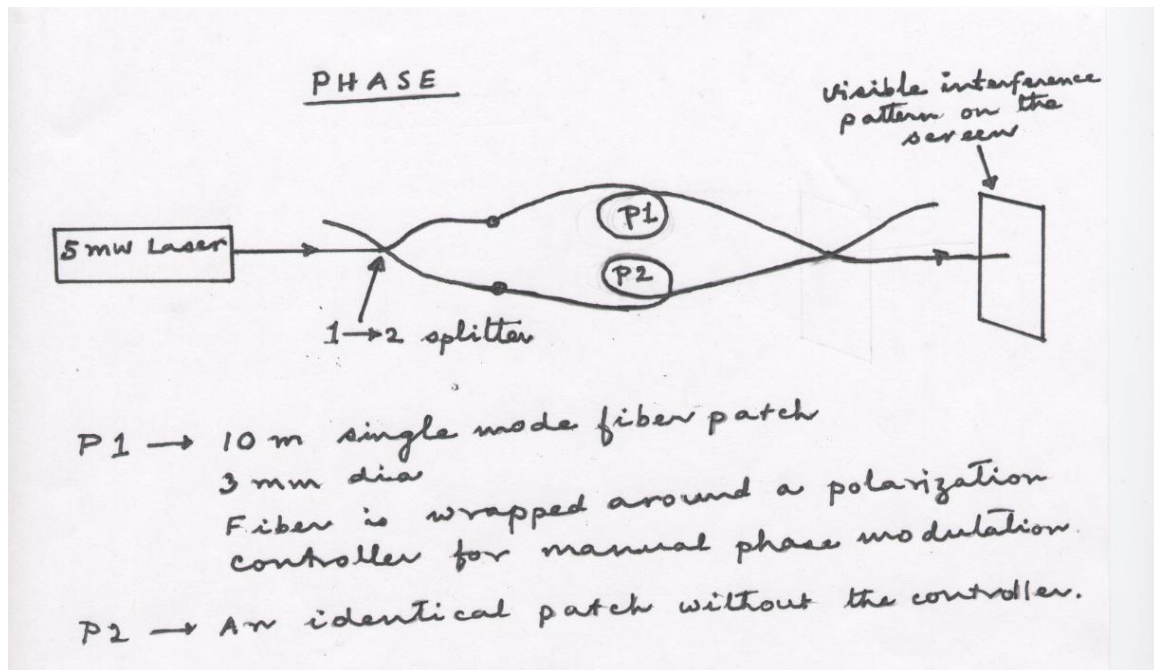 PHASE
visible interference
pattern on the
screen
5mW Laser
P1
P2
1→2 splitter
P1 → 10 m single mode fiber patch
3 mm dia
Fiber is wrapped around a polarization
controller for manual phase modulation.
P2 → An identical patch without the controller.